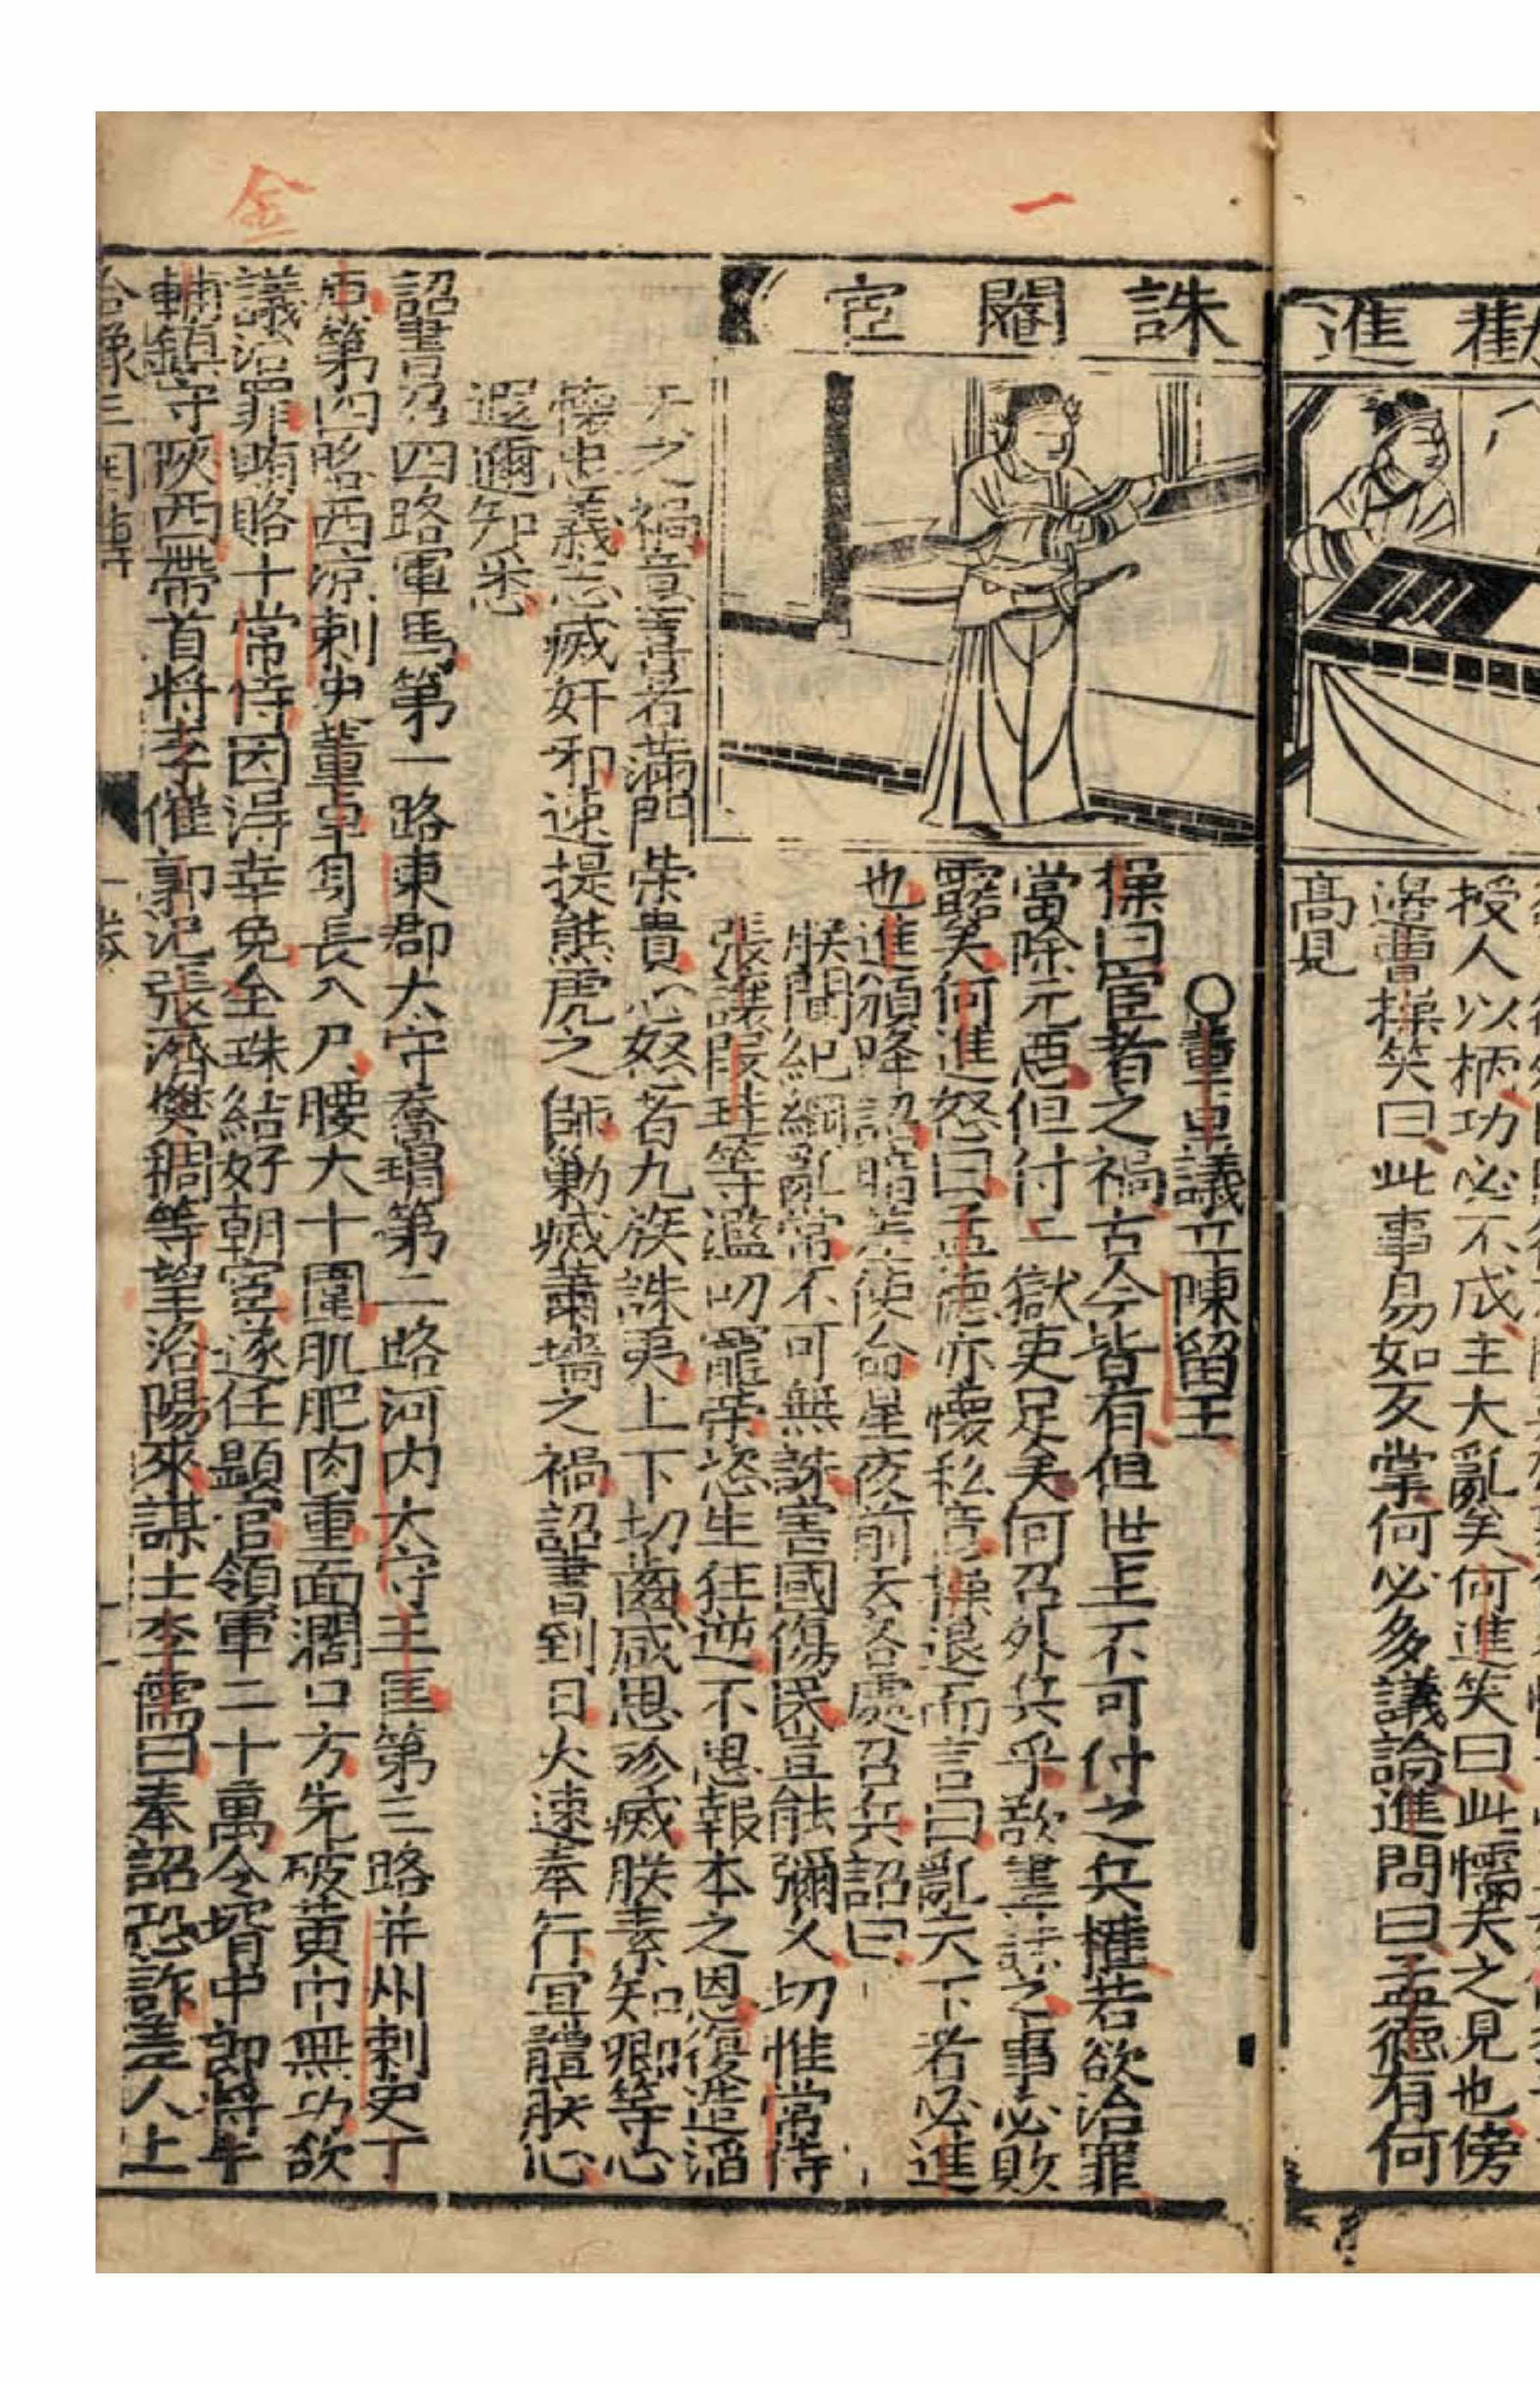 進
授人以柄功必不成主大亂矣何進笑曰此懦夫之見也傍
邊曹操笑曰此事易如反掌何必多議論進問曰孟德有何
高見
誅閹宦
一
○董卓議立陳留王
操曰宦者之禍古今皆有但世主不可付之兵權若欲治罪
當除元惡但付一獄吏足矣何召外兵乎欲盡誅之事必敗
露矣何進怒曰孟德亦懷私意操退而言曰亂天下者必進
也進須降詔暗差使命星夜前去各處召兵詔曰
朕聞紀綱亂常不可無誅害國傷民豈能彌久切惟常侍
張讓段珪等濫叨寵荣恣生狂逆不思報本之恩復造滔
天之禍意喜者滿門荣貴心怒者九族誅夷上下切齒咸思殄滅朕素知卿等心
懷忠義志滅奸邪速提熊虎之師勦滅蕭墻之禍詔書到日火速奉行宜體朕心
遐邇知悉
詔書召四路軍馬第一路東郡大守喬瑁第二路河内大守王匡第三路并州刺史丁
原第四路西凉刺史董卓身長八尺腰大十圍肌肥肉重面濶口方先破黄巾無功欲
議治罪賄賂十常侍因得幸免金珠結好朝宦遂任顯官領軍二十萬令壻中郎將牛
輔鎮守陜西帶首將李傕郭汜張濟樊稠等望洛陽來謀士李儒曰奉詔恐詐差人上
金
三国傳
一卷